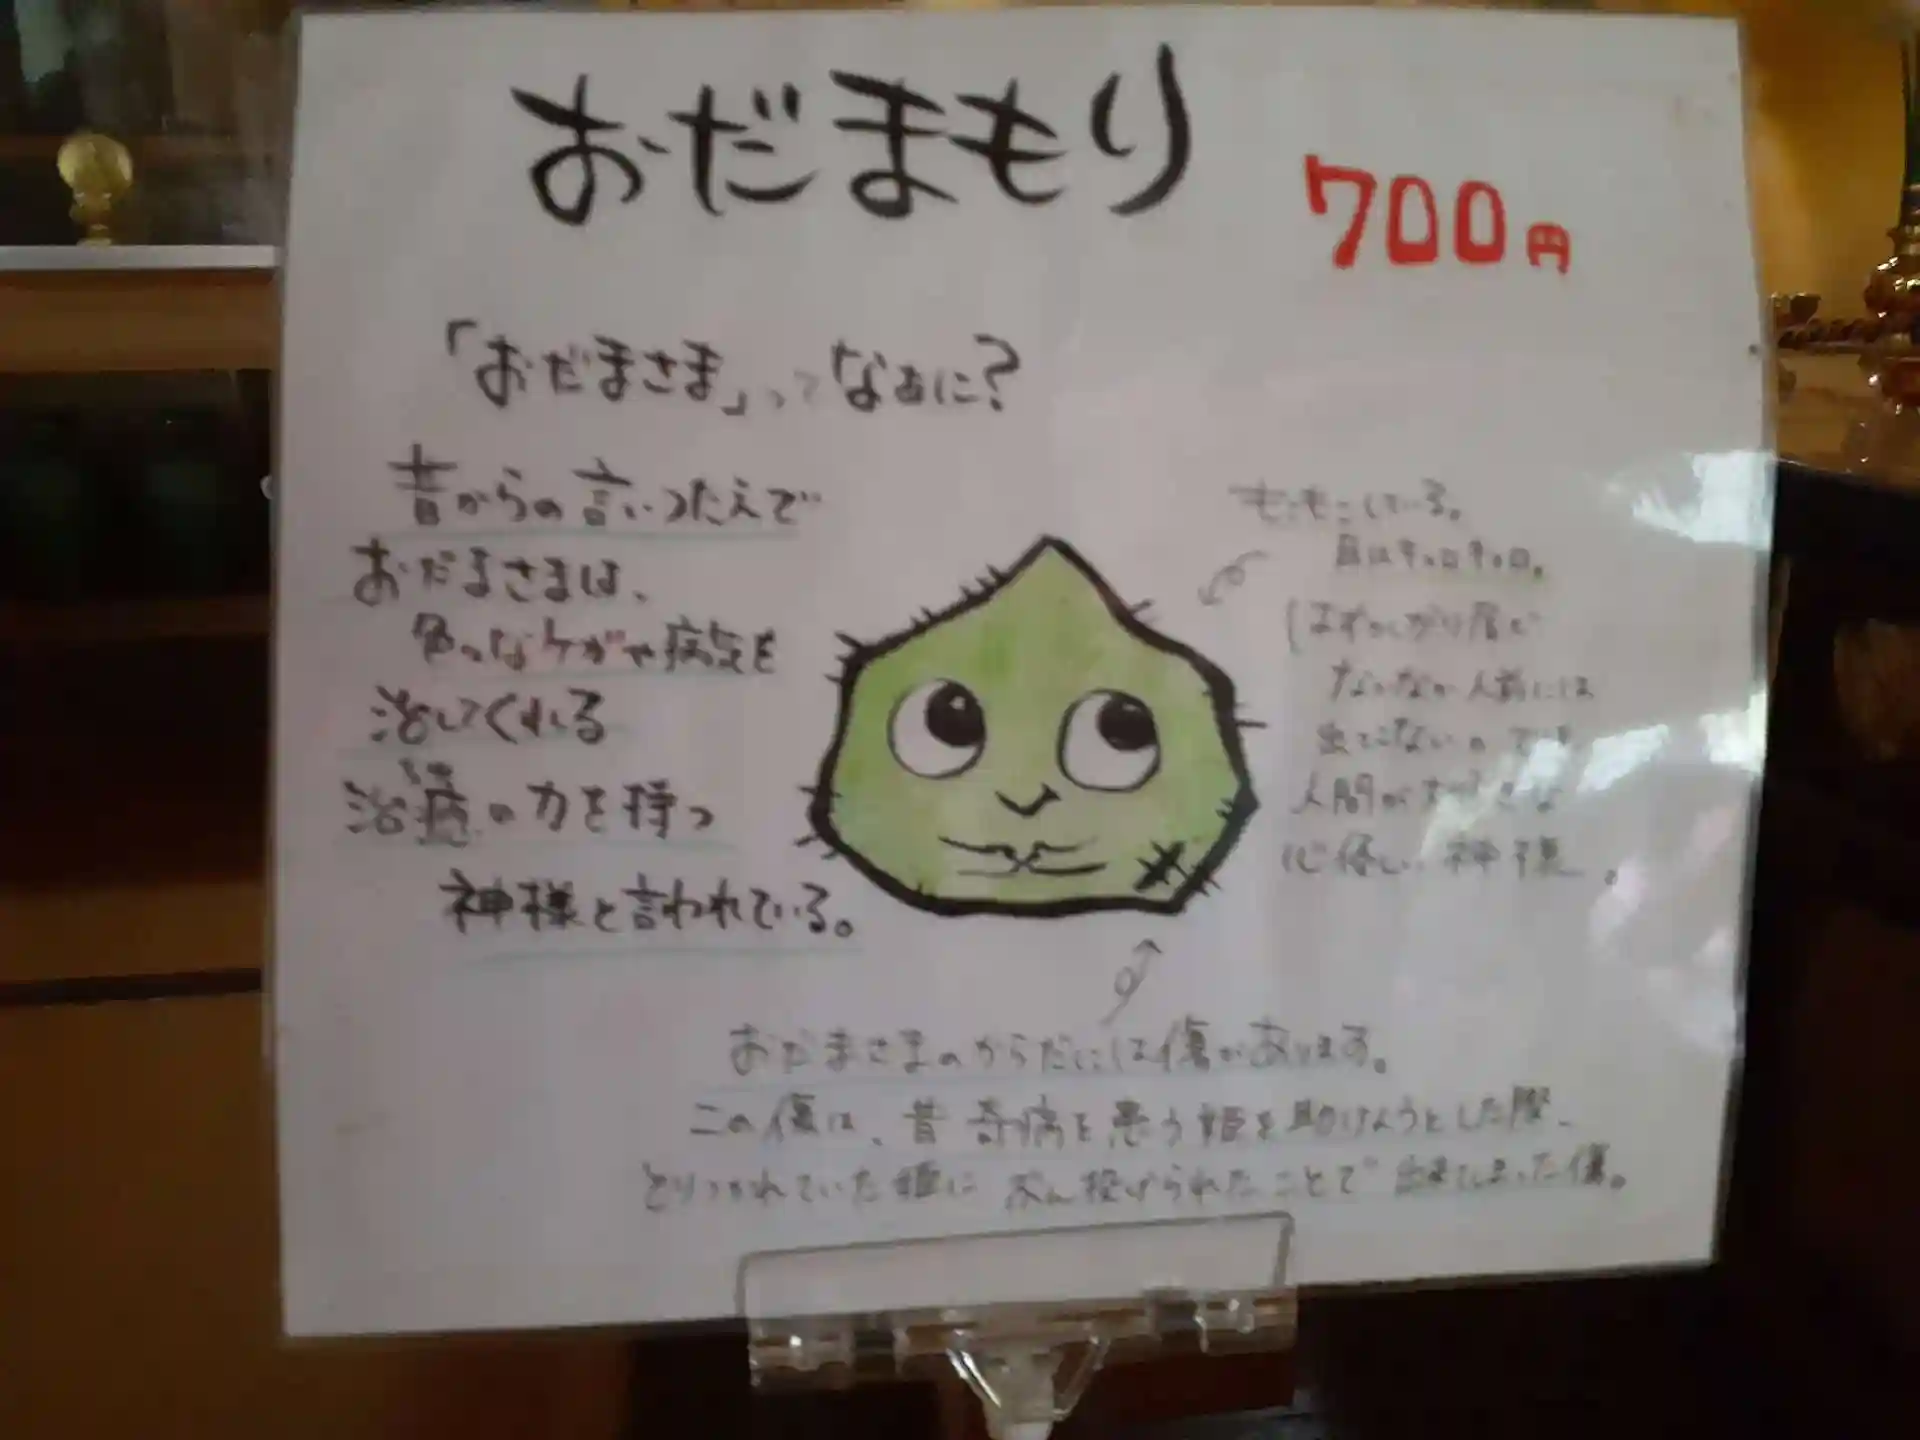 おだまもり
700円
「おだまさま」ってなぁに?
昔からの言いつたえで
おだまさまは、
色々なケガや病気を
治してくれる
治癒の力を持つ
神様と言われている。
もこもこしている。
目はキョロキョロ。
はずかしがり屋で
なかなか人前には
出てこないの
人間が大好きな
心優しい神様。
おだまさまのからだには傷があります。
この傷は、昔奇病を患う姫を助けようとした際、
とりつかれていた姫にぶん投げられたことで出来てしまった傷。